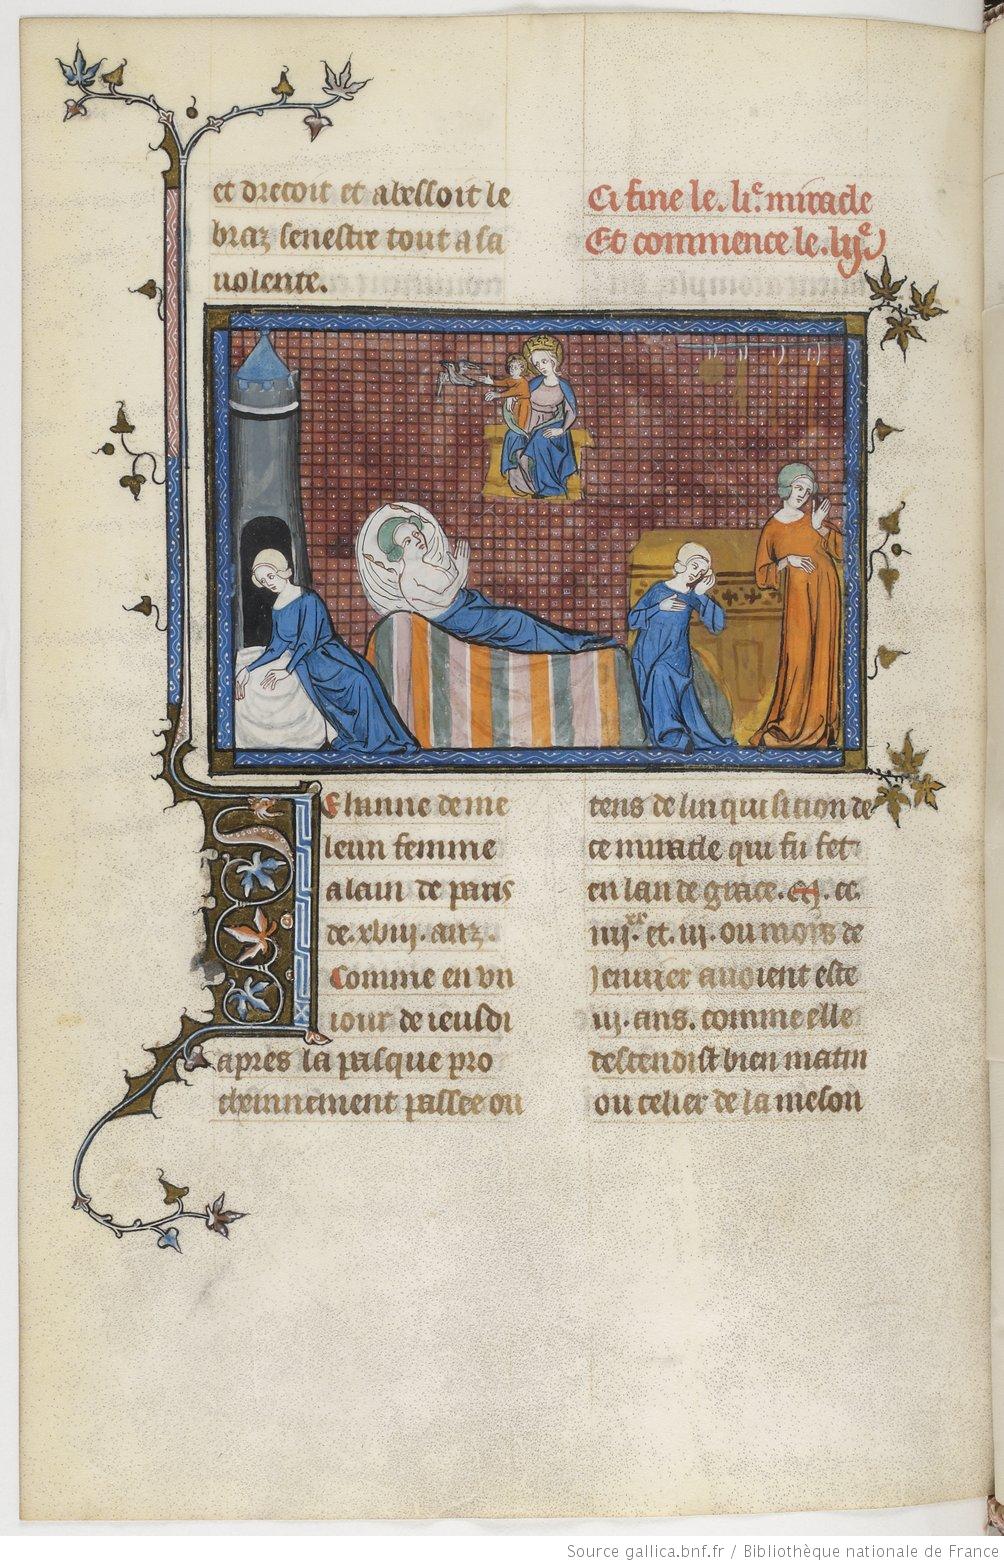 et drecoit et abessoit le
braz senestre tout a sa
volente.
Ci fine le .li.e miracle
Et commence le .lij.e
Ehanne de me
leun femme
alain de paris
de .xviij. anz.
Comme en un
iour de ieusdi
apres la pasque pro
cheinnement passee ou
tens de linquisicion de
ce miracle qui fu fet
en lan de grace. m. cc.
iiij.xx et .iij. ou mois de
Jenvier avoient este
iij. ans. comme elle
descendist bien matin
ou celier de la meson
Source gallica.bnf.fr / Bibliothèque nationale de France